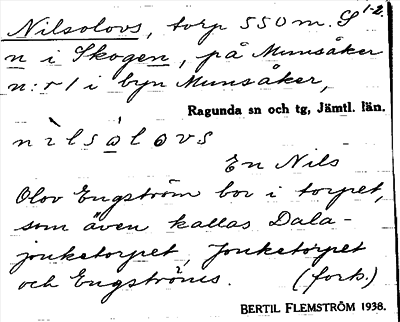 Nilsolovs, torp 550 m. S 1-2.
n i Skogen, på Munsåker
n:r 1 i byn Munsåker,
Ragunda sn och tg, Jämtl. län.
nìlsòlovs
En Nils
Olov Engström bor i torpet,
som även kallas Dala-
jonketorpet, Jonketorpet
och Engströms. (forts.)
BERTIL FLEMSTRÖM 1938.